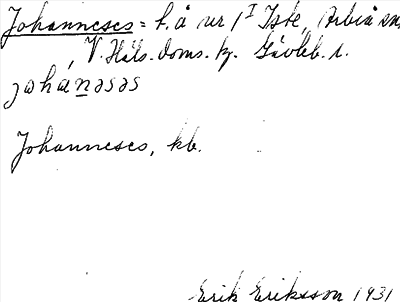 Johanneses = f. å nr 1<sup>I</sup> Iste, Arbrå sn,
V. Häls. doms. hj. Gävleb. l.
johánəsəs
Johanneses, kb.
Erik Eriksson 1931